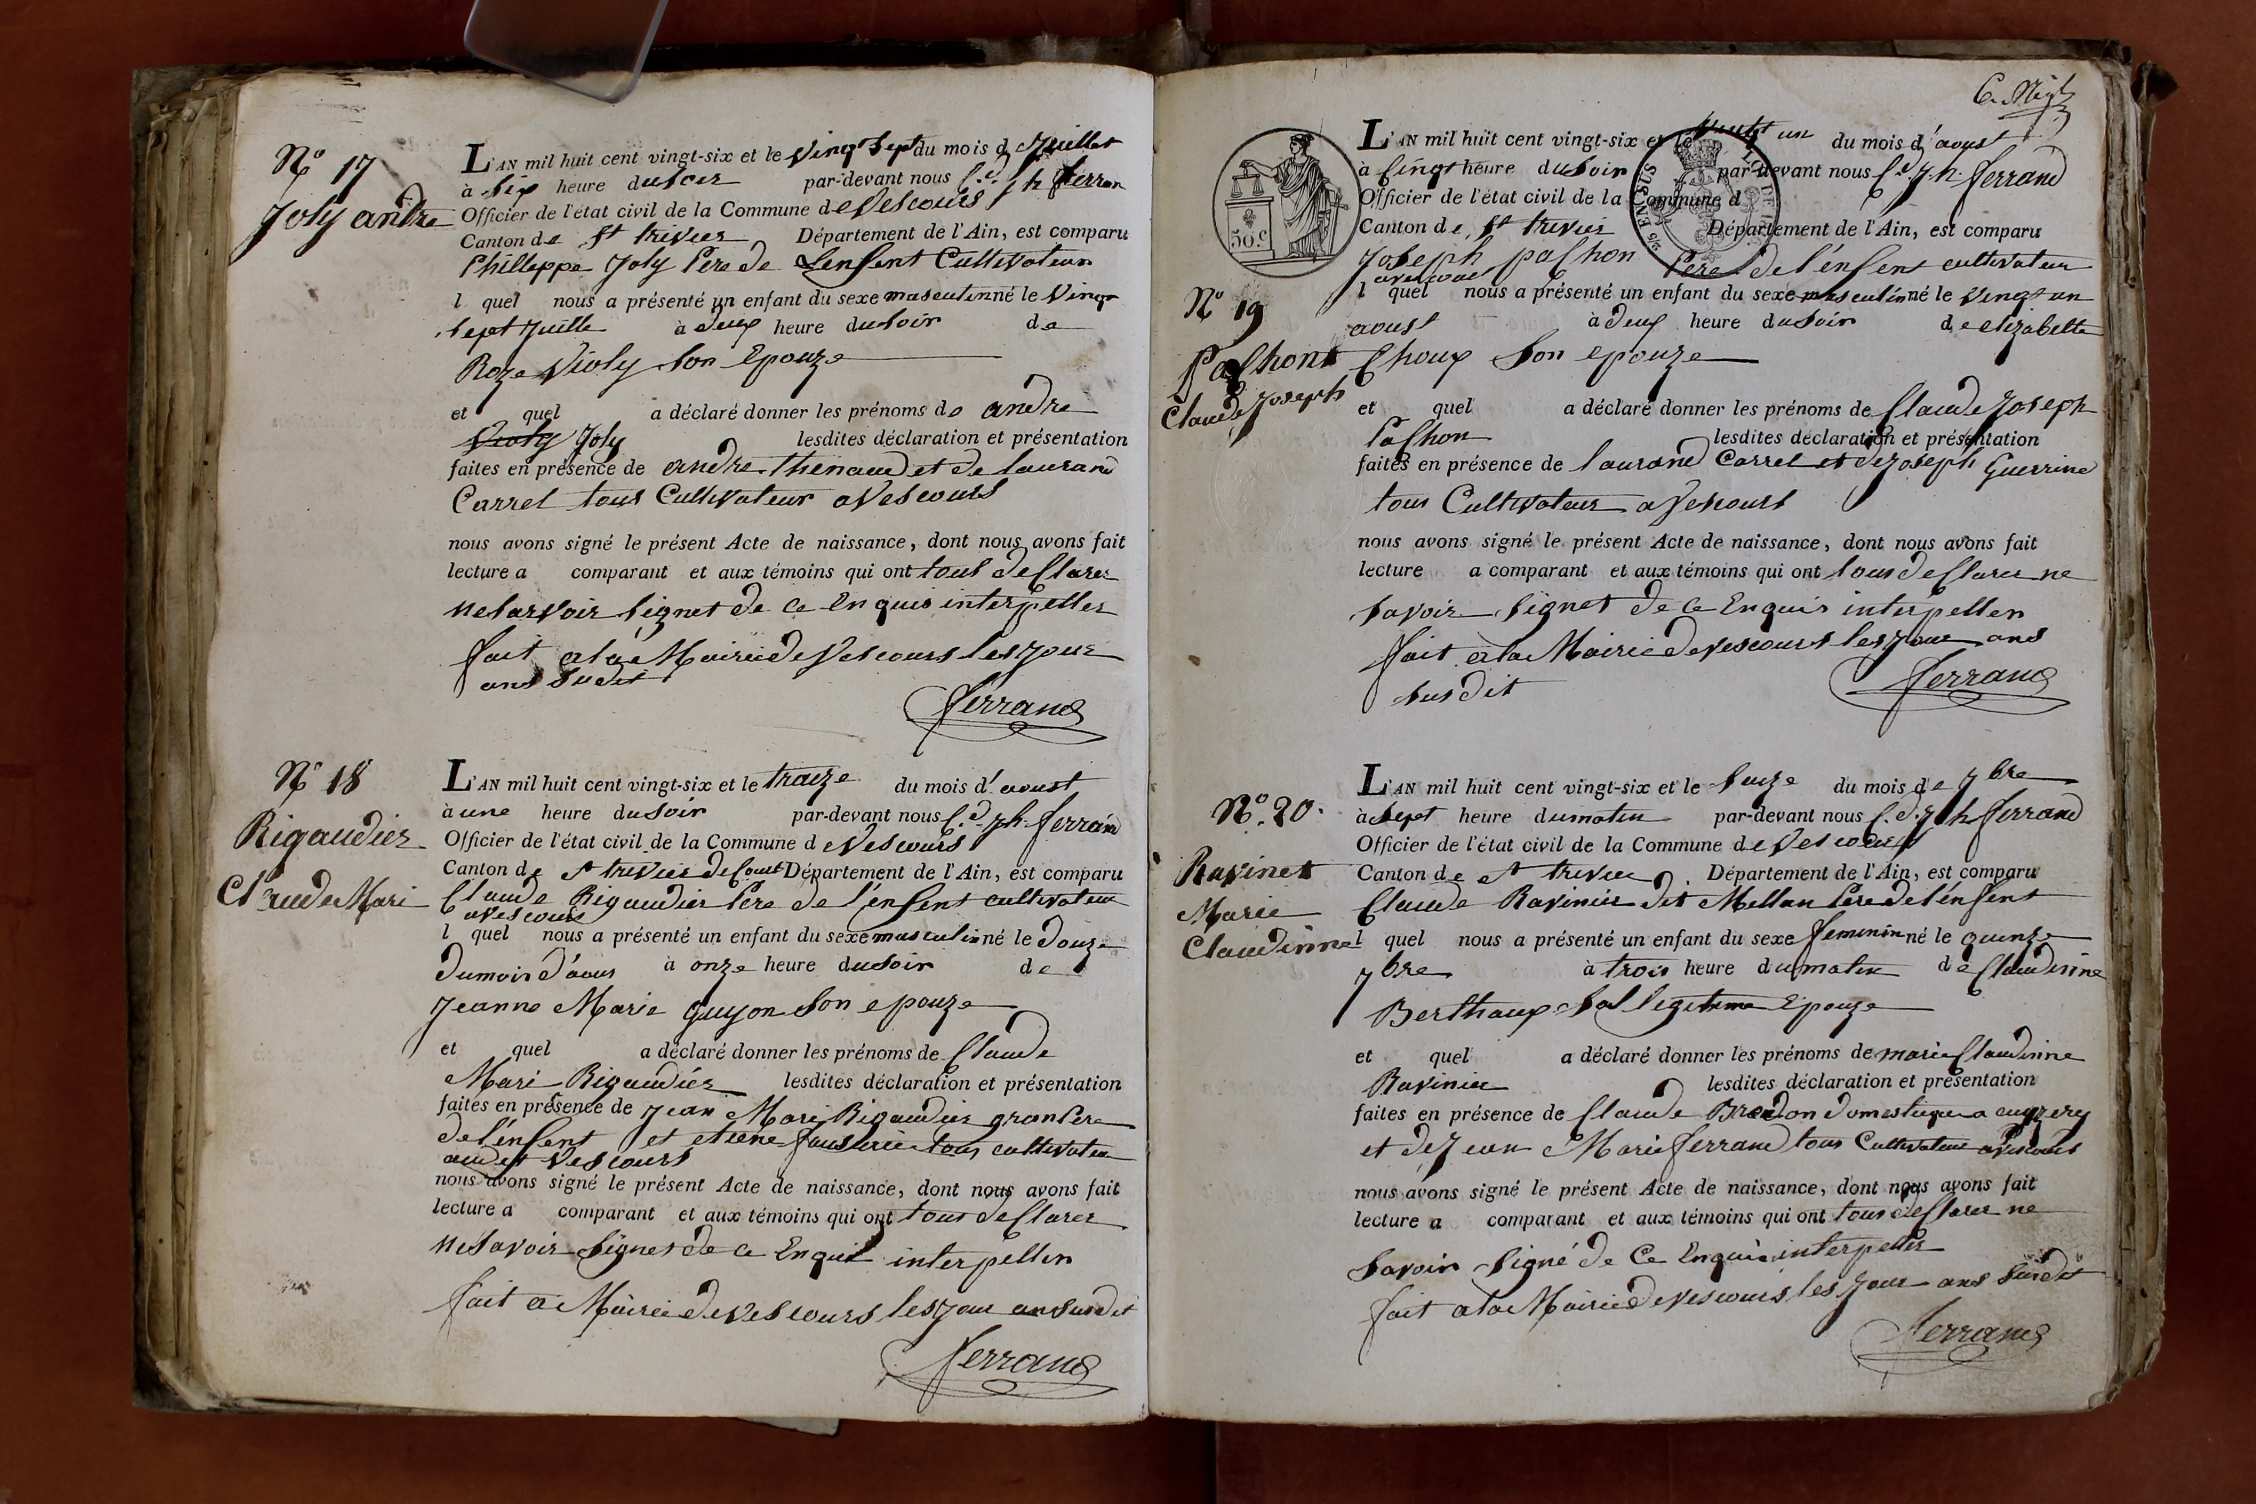 N.o 17
Joly andre
L'AN mil huit cent vingt-six et le Vingt sept du mois d Juillet
à Six heure du soir par-devant nous C.d j.h ferran
Officier de l'état civil de la Commune de Vescours
Canton de St trivier Département de l'Ain, est comparu
Philleppe Joly Pere de Lenfent Cultivateur
l quel nous a présenté un enfant du sexe masculin né le Vingt
Sept Juille à deux heure du soir de
Roze Violy Son Epouze
et quel a déclaré donner les prénoms de andre
Violy Joly lesdites déclaration et présentation
faites en présence de andre thenaud et de laurand
Carrel tous Cultivateur a Vescours
nous avons signé le présent Acte de naissance, dont nous avons fait
lecture a comparant et aux témoins qui ont tous declarer
ne sarvoir Signet de ce Enquis interpeller
fait a la Mairiè de Vescours les jour
ans Sudit
ferrand
N.o 18
Rigaudier
Claude Mari
L'AN mil huit cent vingt-six et le traize du mois d' aoust
à une heure du soir par-devant nous C.d j.h. ferrand
Officier de l'état civil de la Commune de Vescours
Canton de St trivier de Court Département de l'Ain, est comparu
Claude Rigaudier Pere de l'énfent cultivateur
a Vescours
l quel nous a présenté un enfant du sexe masculin né le douze
du mois d'aous à onze heure du soir de
jeanne Marie guyon Son epouze
et quel a déclaré donner les prénoms de Claude
Mari Rigaudiér lesdites déclaration et présentation
faites en présence de jean Mari Rigaudier gran Pere
de l'énfent et etiene tous cultivateur
audit Vescours
nous avons signé le présent Acte de naissance, dont nous avons fait
lecture a comparant et aux témoins qui ont tous declarer
ne Savoir Signer de ce Enquit interpeller
fait a Mairiè de Vescours les jour an Susdit
ferrand
50.c
N.o 19
Pachont
Claude Joseph
L'AN mil huit cent vingt-six et le Vingt un du mois d'aoust
à Cinqt heure du soir par-devant nous C.d j.h. ferrand
Officier de l'état civil de la Commune d
Canton de St trivier Département de l'Ain, est comparu
Joseph pachon Pere de l'énfent cultivateur
a vescour
l quel nous a présenté un enfant du sexe masculin né le Vingt un
aoust à deux heure du soir de elizabette
Choux Son epouze
et quel a déclaré donner les prénoms de Claude Joseph
Pachon lesdites déclaration et présentation
faites en présence de laurand Carrel et de Joseph Guerrine
tous Cultivateur a Vescours
nous avons signé le présent Acte de naissance, dont nous avons fait
lecture a comparant et aux témoins qui ont tous declarer ne
Savoir Signet de ce Enquis interpeller
fait a la Mairiè de vescours les jour ans
Susdit
ferrand
N.o 20.
Ravinet
Marie
Claudinne
L'AN mil huit cent vingt-six et le Saize du mois de 7bre
à Sept heure du matin par-devant nous C.d. j.h ferrand
Officier de l'état civil de la Commune de Vescours
Canton de St trivier Département de l'Ain, est comparu
Claude Ravinier dit Mellan Pere de l'énfent
l quel nous a présenté un enfant du sexe feminin né le quinze
7bre à trois heure du matin de Claudinne
Berthaux Sa legitime Epouze
et quel a déclaré donner les prénoms de marie Claudinne
Ravinier lesdites déclaration et présentation
faites en présence de Claude domestique a
et de jean Marie ferrand tous Cultivateur a Vescours
nous avons signé le présent Acte de naissance, dont nous avons fait
lecture a comparant et aux témoins qui ont tous declarer ne
Savoir Signé de Ce Enquis interpeller
fait a la Mairie de vescours les jour ans Susdit
ferrand